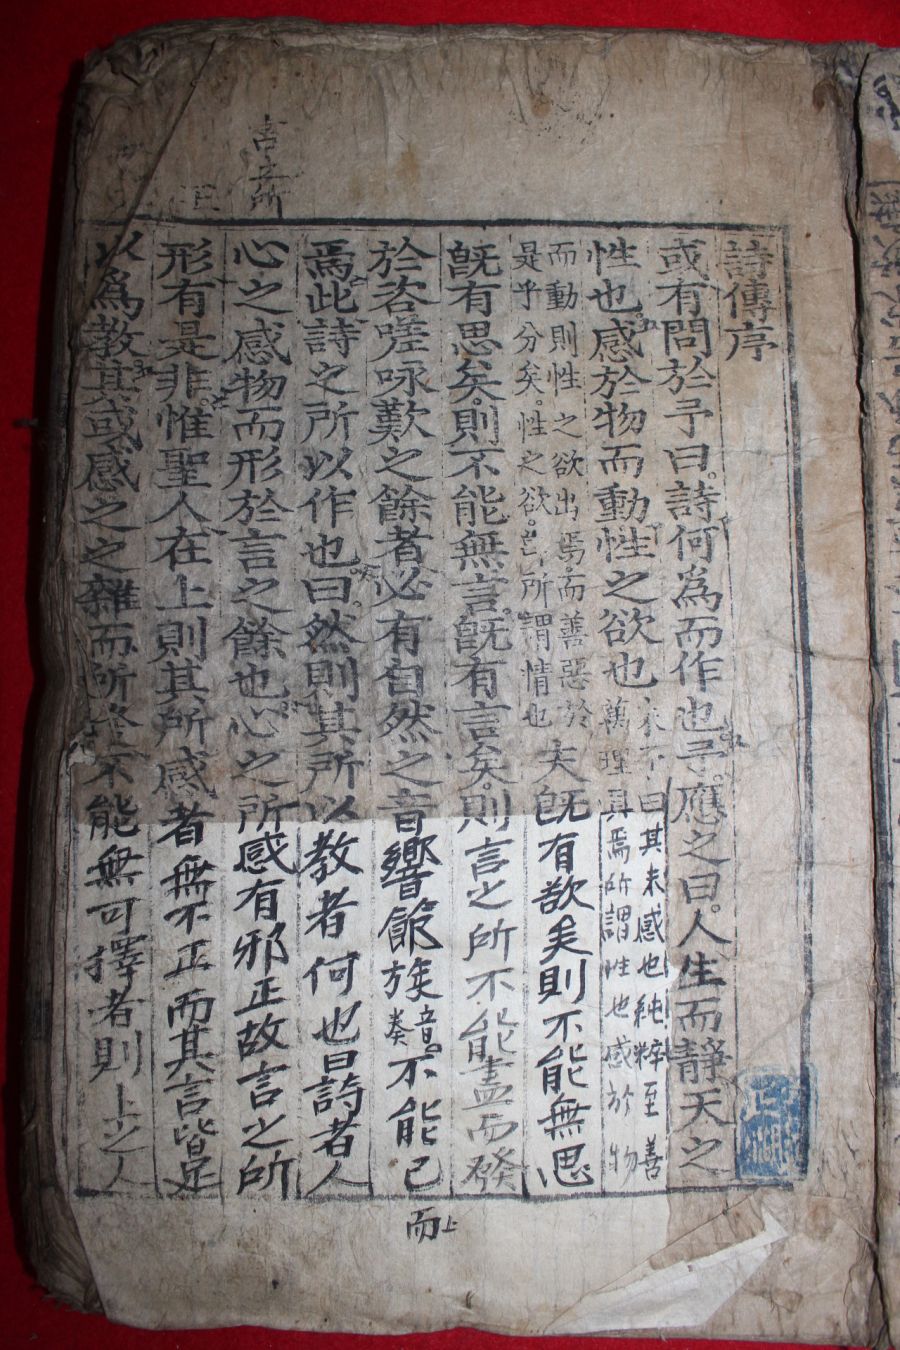 詩傳序
或有問於予曰。詩何爲而作也。予應之曰。人生而靜天之
性也。感於物而動性之欲也
曰其未感也純粹至善
萬理具焉所謂性也感於物
而動則性之欲出焉而善惡於
是乎分矣。性之欲。所謂情也
夫旣有欲矣則不能無思
旣有思矣。則不能無言。旣有言矣。則言之所不能盡而發
於咨嗟咏歎之餘者必有自然之音響節族
音
奏
不能已
而上
焉此詩之所以作也曰。然則其所以教者何也曰詩者人
心之感物而形於言之餘也心之所感有邪正故言之所
形有是非。惟聖人在上則其所感者無不正而其言皆足
以爲教其或感之之雜而所發不能無可擇者則上之人
正